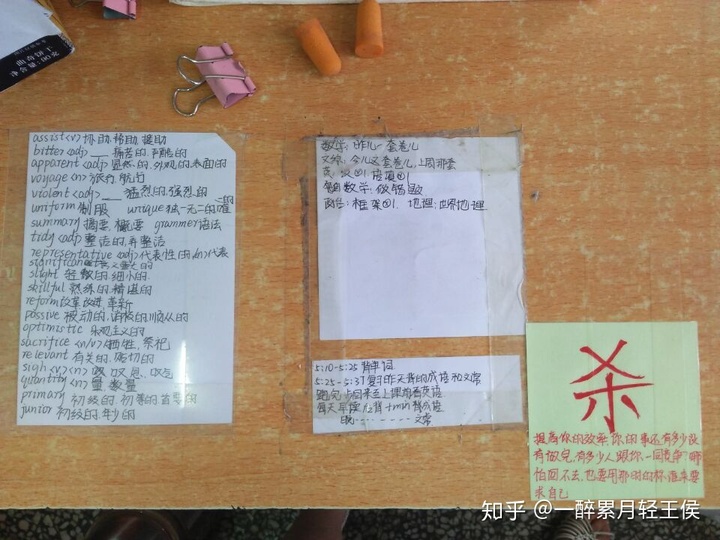 assist<v>协助.帮助.援助
bitter<adj>__痛苦的.
apparent<adj>显然的.外观的.表面的
voyage<n>旅行.航海
violent<adj>__猛烈的.强烈的
uniform 制服 unique 独一无二的
summary 摘要.概要 grammer 语法
tidy<adj>整洁的.弄整洁
representative<adj>代表性的<n>代表
significance
slight 轻微的.细小的.
skillful 熟练的.精湛的
reform 改革.改进.革新
passive 被动的.消极的.顺从的
optimistic 乐观主义的
sacrifice<n/v>牺牲.祭祀
relevant 有关的.
sigh<v><n>叹气
quantity<n>量.数量
primary 初级的.初等的.首要的
junior 初级的.年少的
数学:昨儿一套卷儿
文综:今儿文套卷儿,上周那套
英:
数学:改错题
政治:框架 地理:世界地理
5:10-5:25 背单词
5:25-5:37 复习昨天背的成语和文常
文常
杀
提高你的效率,你的事还有多少没
有做完,有多少人跟你一同竞争?哪
怕回不去,也要用那时的标准来要
求自己
知乎 @一醉累月轻王侯